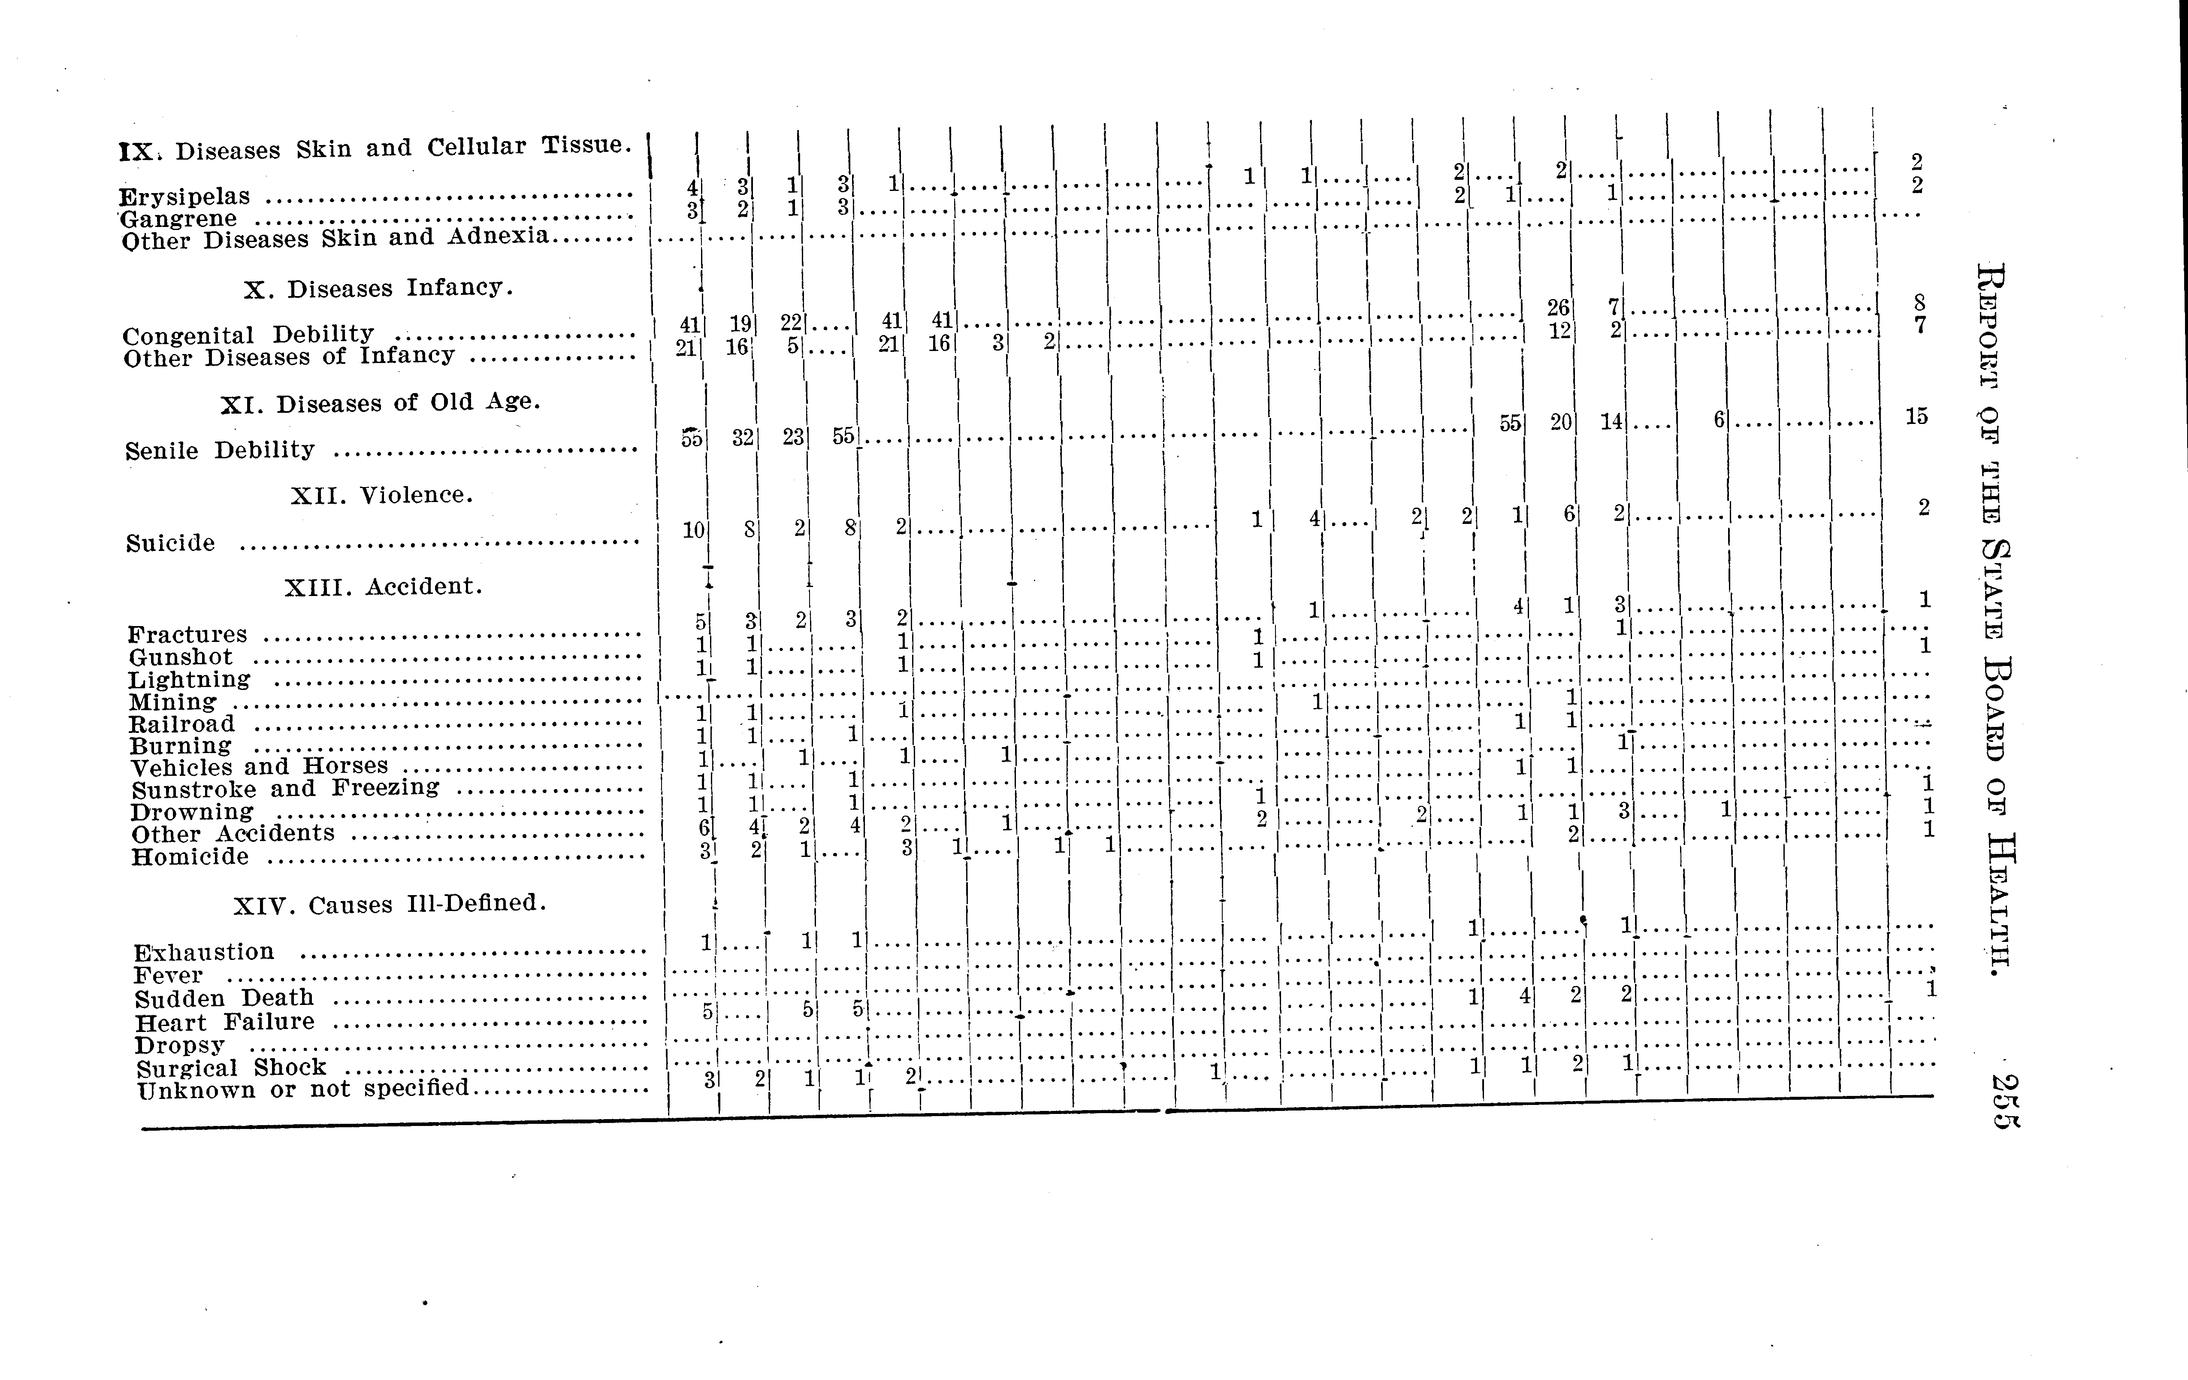 IX. Diseases Skin and Cellular Tissue.
Erysipelas 4 3 1 3 1 .... 1 1 .... 2 .... 2 .... 2
Gangrene 3 2 1 3 .... 2 1 .... 1 .... 2
Other Diseases Skin and Adnexia ....
X. Diseases Infancy.
Congenital Debility 41 19 22 .... 41 41 .... 26 7 .... 8
Other Diseases of Infancy 21 16 5 .... 21 16 3 2 .... 12 2 .... 7
XI. Diseases of Old Age.
Senile Debility 55 32 23 55 .... 55 20 14 .... 6 .... 15
XII. Violence.
Suicide 10 8 2 8 2 .... 1 4 .... 2 2 1 6 2 .... 2
XIII. Accident.
Fractures 5 3 2 3 2 .... 1 .... 4 1 3 .... 1
Gunshot 1 1 .... 1 .... 1 .... 1 ....
Lightning 1 1 .... 1 .... 1 .... 1
Mining ....
Railroad 1 1 .... 1 .... 1 .... 1 ....
Burning 1 1 .... 1 .... 1 1 ....
Vehicles and Horses 1 .... 1 .... 1 .... 1 .... 1 ....
Sunstroke and Freezing 1 1 .... 1 .... 1 1 ....
Drowning 1 1 .... 1 .... 1 .... 1
Other Accidents 6 4 2 4 2 .... 1 .... 2 .... 2 .... 1 1 3 .... 1 .... 1
Homicide 3 2 1 .... 3 1 .... 1 1 .... 2 .... 1
XIV. Causes Ill-Defined.
Exhaustion 1 .... 1 1 .... 1 .... 1 ....
Fever ....
Sudden Death ....
Heart Failure 5 .... 5 5 .... 1 4 2 2 .... 1
Dropsy ....
Surgical Shock ....
Unknown or not specified 3 2 1 1 2 .... 1 .... 1 1 2 1 ....
REPORT OF THE STATE BOARD OF HEALTH. 255